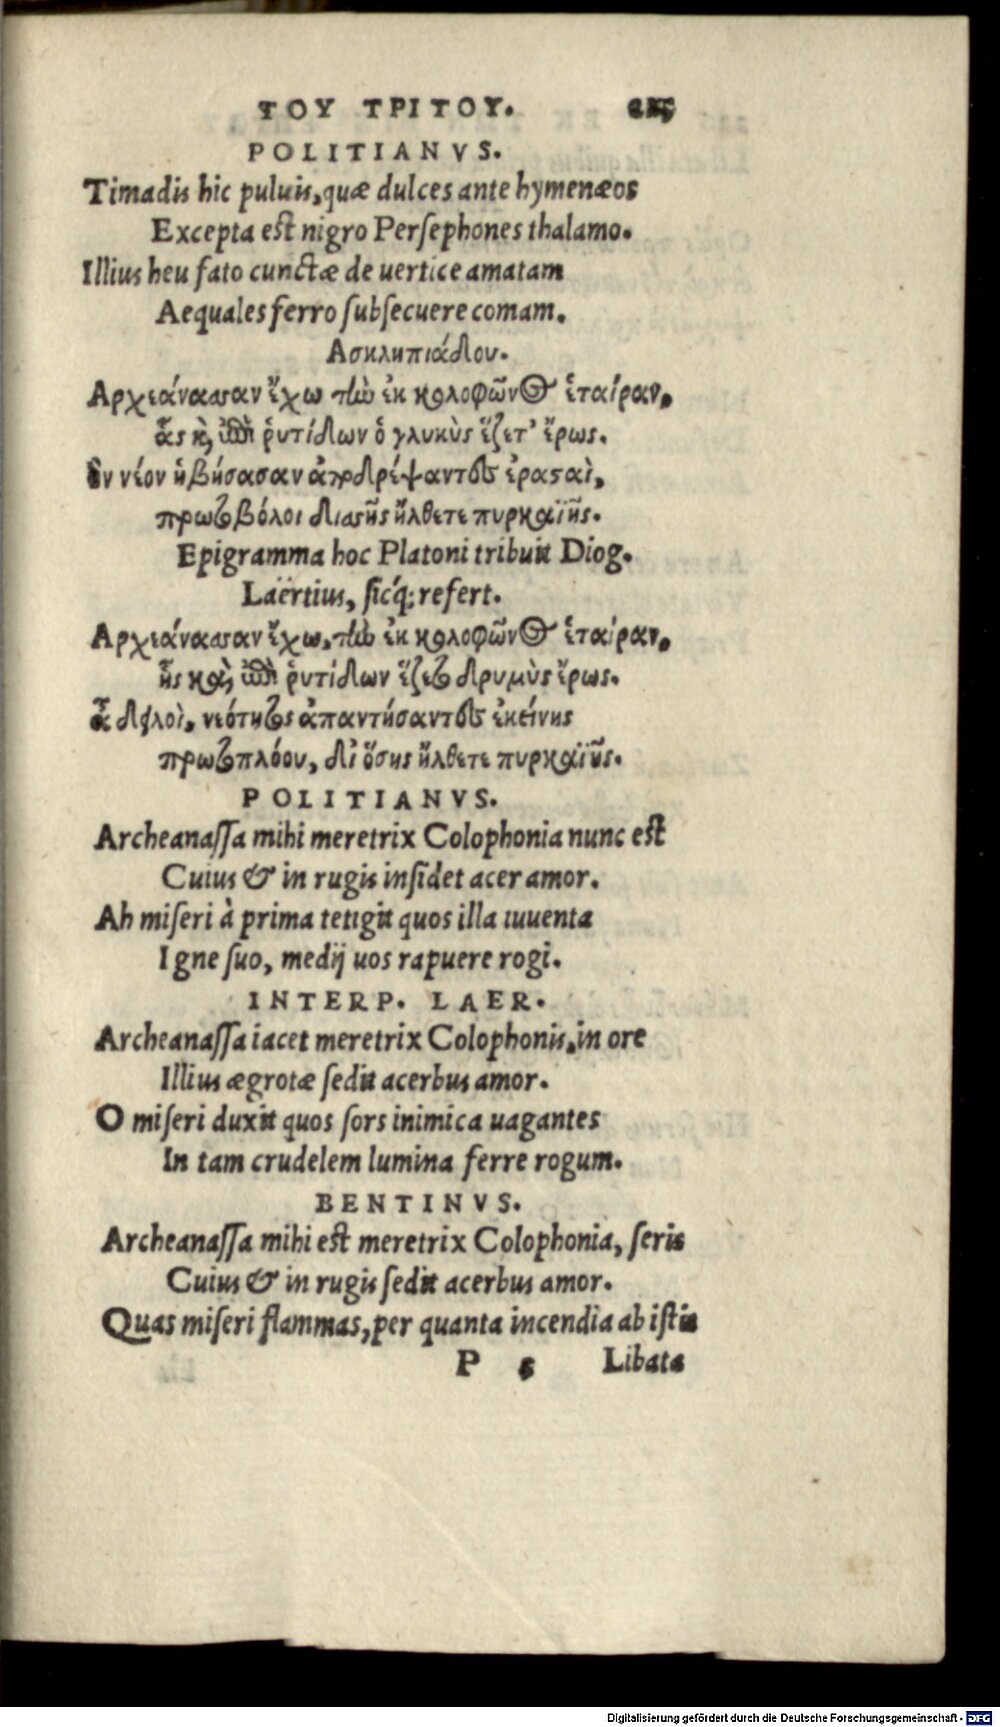 ΤΟΥ ΤΡΙΤΟΥ.
POLITIANVS.
Timadis hic puluis, quæ dulces ante hymenæos
Excepta est nigro Perſephones thalamo.
Illius heu fato cunctæ de uertice amatam
Aequales ferro ſubſecuere comam.
Ασκληπιάδου.
Αρχεάνασσαν ἔχω τὰν ἐκ κολοφῶνος ἑταίραν,
ἇς καὶ ἐπὶ ῥυτίδων ὁ γλυκὺς ἕζετ' ἔρως.
ὃν νέον ἡβήσασαν ἀποδρέψαντες ἐρασταὶ,
πρωτοβόλοι διαστῆς ἤλθετε πυρκαϊῆς.
Epigramma hoc Platoni tribuit Diog.
Laërtius, ſicq́; refert.
Αρχεάνασσαν ἔχω, τὴν ἐκ κολοφῶνος ἑταίραν,
ἧς καὶ ἐπὶ ῥυτίδων ἕζετο δριμὺς ἔρως.
ἆ δειλοὶ, νεότητος ἀπαντήσαντες ἐκείνης
πρωτοπλόου, δι' ὅσης ἤλθετε πυρκαϊῆς.
POLITIANVS.
Archeanaſſa mihi meretrix Colophonia nunc est
Cuius & in rugis inſidet acer amor.
Ah miſeri à prima tetigit quos illa iuuenta
Igne ſuo, medij uos rapuere rogi.
INTERP. LAER.
Archeanaſſa iacet meretrix Colophonis, in ore
Illius ægrotæ ſedit acerbus amor.
O miſeri duxit quos ſors inimica uagantes
In tam crudelem lumina ferre rogum.
BENTINVS.
Archeanaſſa mihi est meretrix Colophonia, ſeris
Cuius & in rugis ſedit acerbus amor.
Quas miſeri flammas, per quanta incendia ab iſtis
P 5 Libata
Digitalisierung gefördert durch die Deutsche Forschungsgemeinschaft - DFG